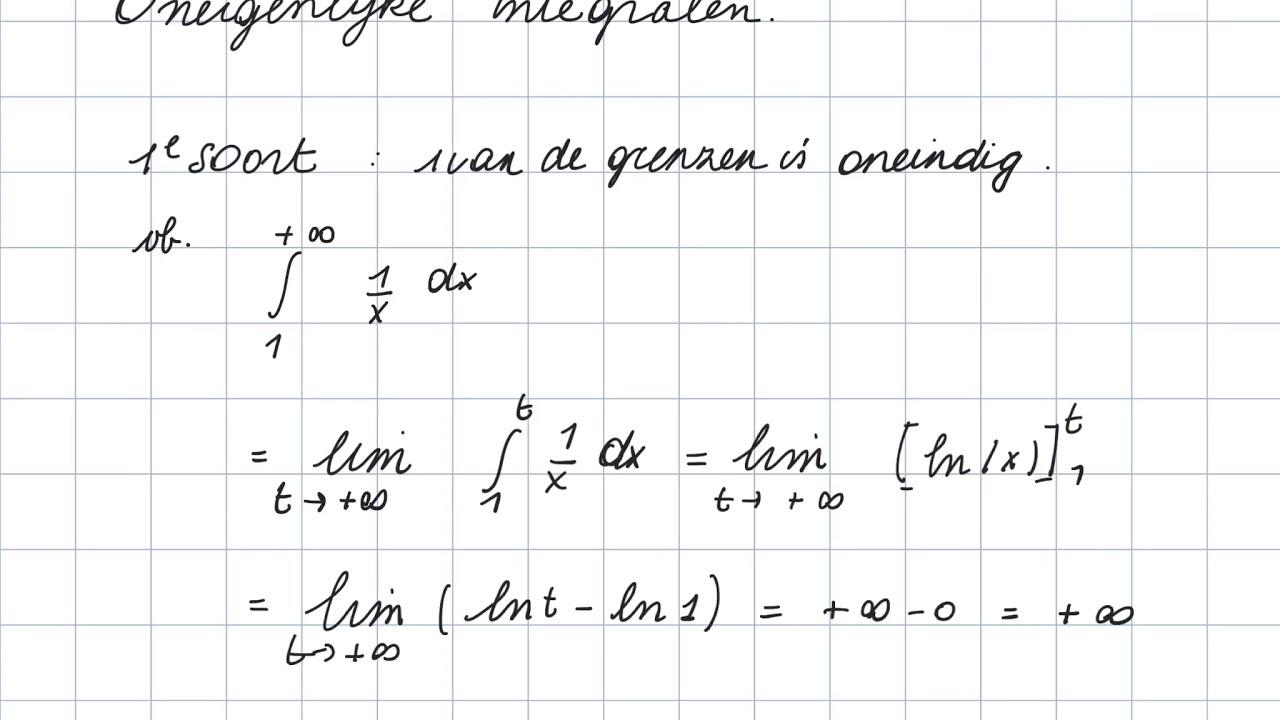 Oneigenlijke integralen.
1e soort : 1 van de grenzen is oneindig.
vb. ∫₁^{+∞} 1/x dx
= lim_{t→+∞} ∫₁^t 1/x dx = lim_{t→+∞} [ln(x)]₁^t
= lim_{t→+∞} (ln t - ln 1) = +∞ - 0 = +∞